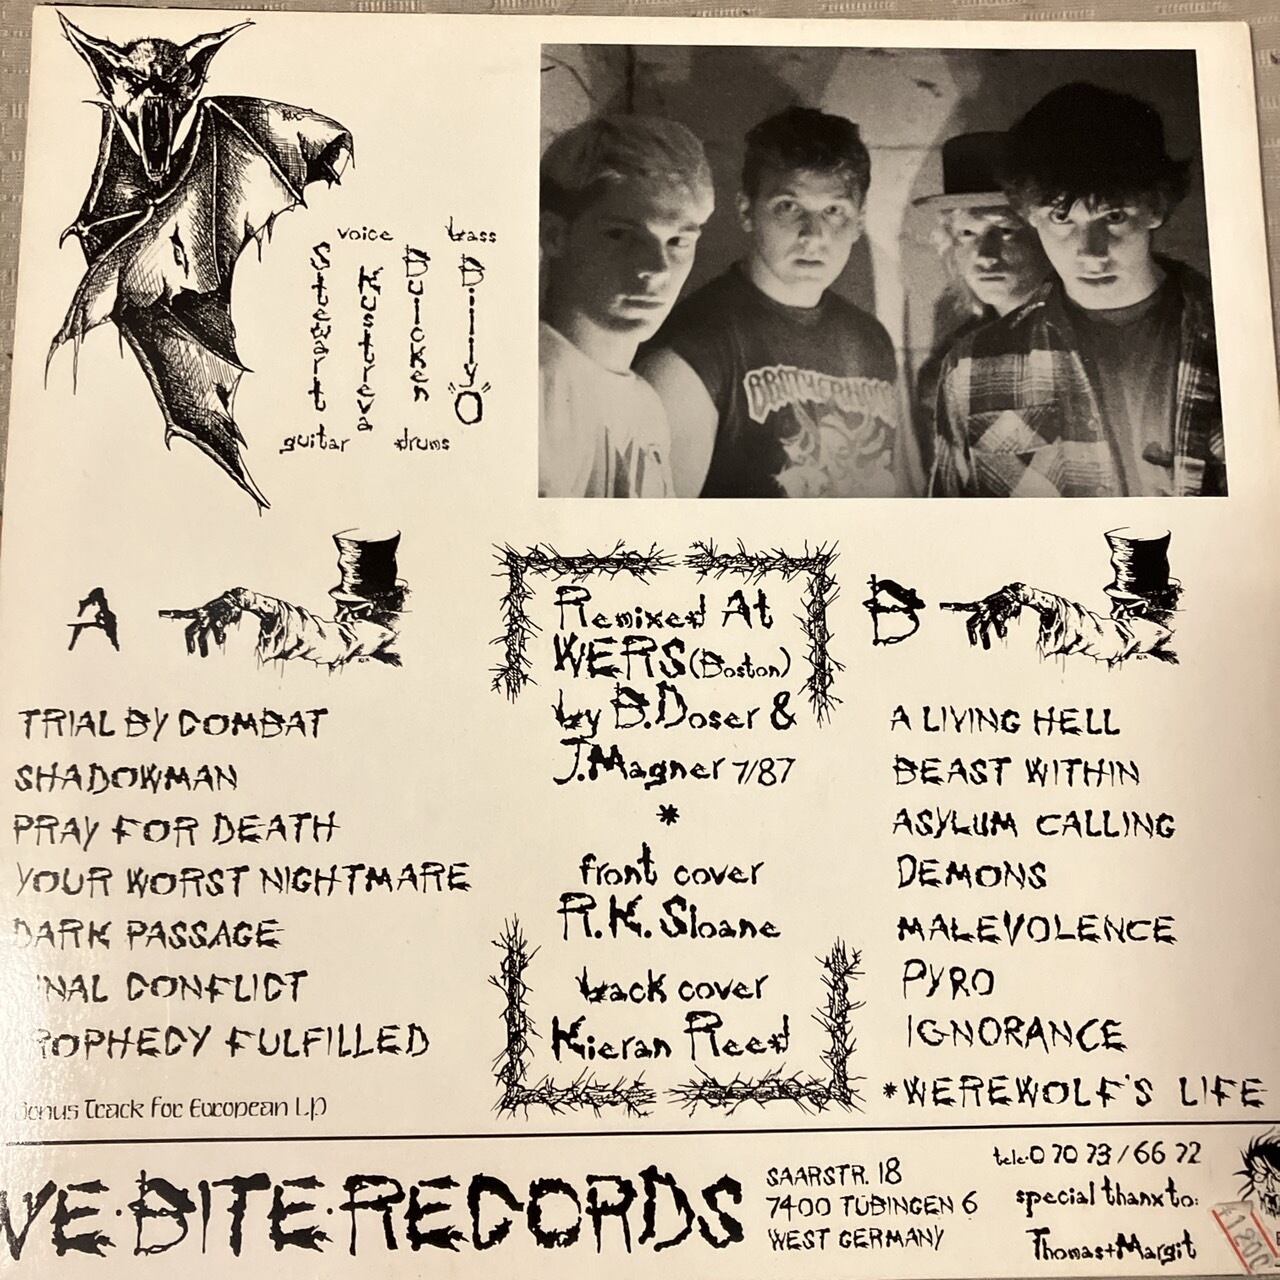 voice
bass
Stewart
Kustreva
Bulcken
Billy"O"
guitar
drums
BROTHERHOOD
A
TRIAL BY COMBAT
SHADOWMAN
PRAY FOR DEATH
YOUR WORST NIGHTMARE
DARK PASSAGE
INAL CONFLICT
ROPHECY FULFILLED
Bonus Track for European LP
Remixed At
WERS (Boston)
by B.Doser &
J.Magner 7/87
*
front cover
R.K. Sloane
back cover
Kieran Reed
B
A LIVING HELL
BEAST WITHIN
ASYLUM CALLING
DEMONS
MALEVOLENCE
PYRO
IGNORANCE
*WEREWOLF'S LIFE
WE·BITE·RECORDS
SAARSTR. 18
7400 TÜBINGEN 6
WEST GERMANY
tele·0 70 73 / 66 72
special thanx to:
Thomas+Margit